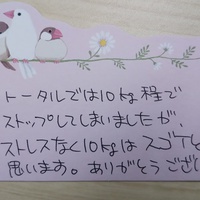 トータルでは10kg程で
ストップしてしまいましたが、
ストレスなく10kgはスゴイと
思います。ありがとうござ